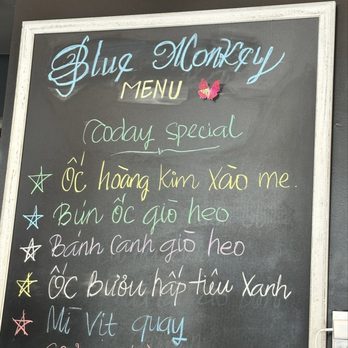 Blue Monkey
MENU
Today special
Ốc hoàng Kim xào me.
Bún ốc giò heo
Bánh canh giò heo
Ốc Bươu hấp tiêu xanh
Mì Vit quay